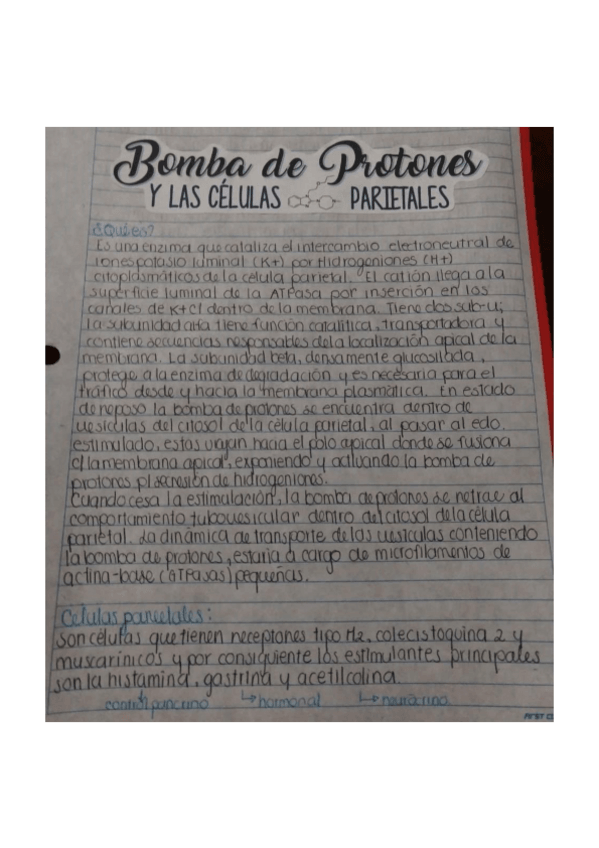 Bomba de Protones
Y LAS CÉLULAS PARIETALES
¿Qué es?
Es una enzima que cataliza el intercambio electroneutral de
iones potasio luminal (K+) por Hidrogeniones (H+)
citoplasmáticos de la célula parietal. El catión llega a la
superficie luminal de la ATPasa por inserción en los
canales de K+Cl dentro de la membrana. Tiene dos sub-u;
la subunidad alfa tiene función catalítica, transportadora y
contiene secuencias responsables de la localización apical de la
membrana. La subunidad beta, densamente glucosilada,
protege a la enzima de degradación y es necesaria para el
tráfico desde y hacia la membrana plasmática. En estado
de reposo la bomba de protones se encuentra dentro de
vesículas del citosol de la célula parietal, al pasar al edo.
estimulado, estas viajan hacia el polo apical donde se fusiona
c/ la membrana apical, exponiendo y activando la bomba de
protones p/ secresión de hidrogeniones.
Cuando cesa la estimulación, la bomba de protones se retrae al
comportamiento tubovesicular dentro del citosol de la célula
parietal. La dinámica de transporte de las vesículas conteniendo
la bomba de protones, estaría a cargo de microfilamentos de
actina-base (GTPasas) pequeñas.
Células parietales:
son células que tienen receptores tipo H2, colecistoquina 2 y
muscarínicos y por consiguiente los estimulantes principales
son la histamina, gastrina y acetilcolina.
control pancrino ↳hormonal ↳neurocrino